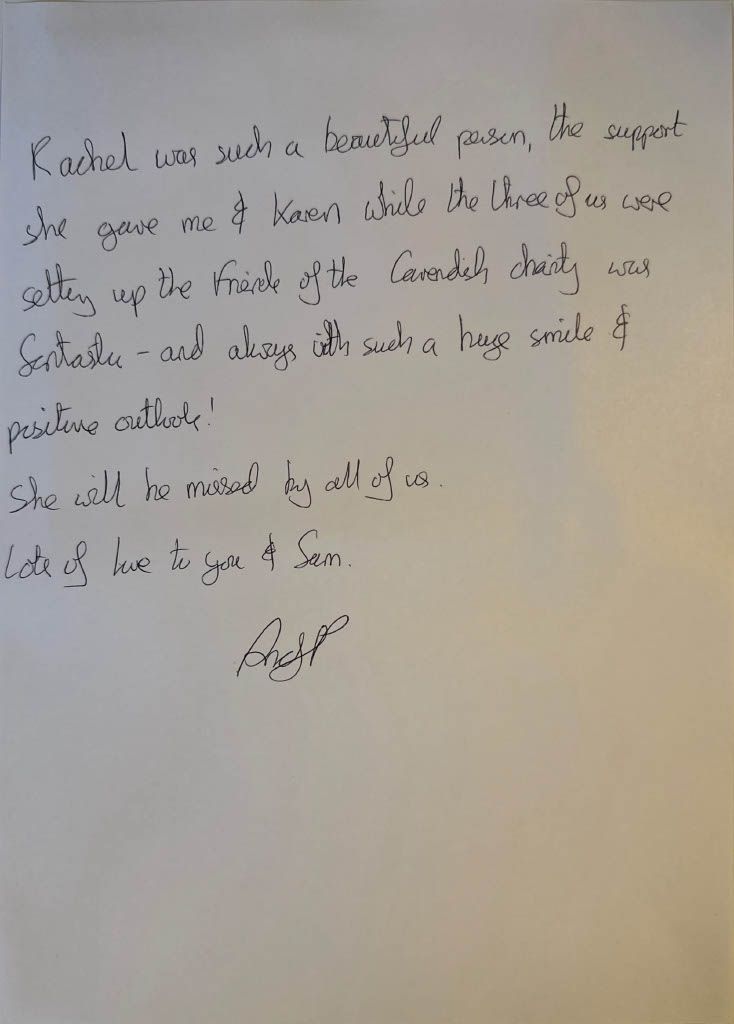 Rachel was such a beautiful person, the support
she gave me & Karen while the three of us were
setting up the Friends of the Cavendish charity was
fantastic - and always with such a huge smile &
positive outlook!
She will be missed by all of us.
Lots of love to you & Sam.